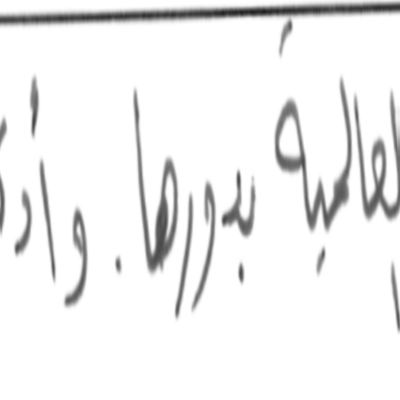 العالمية بدورها. وأد